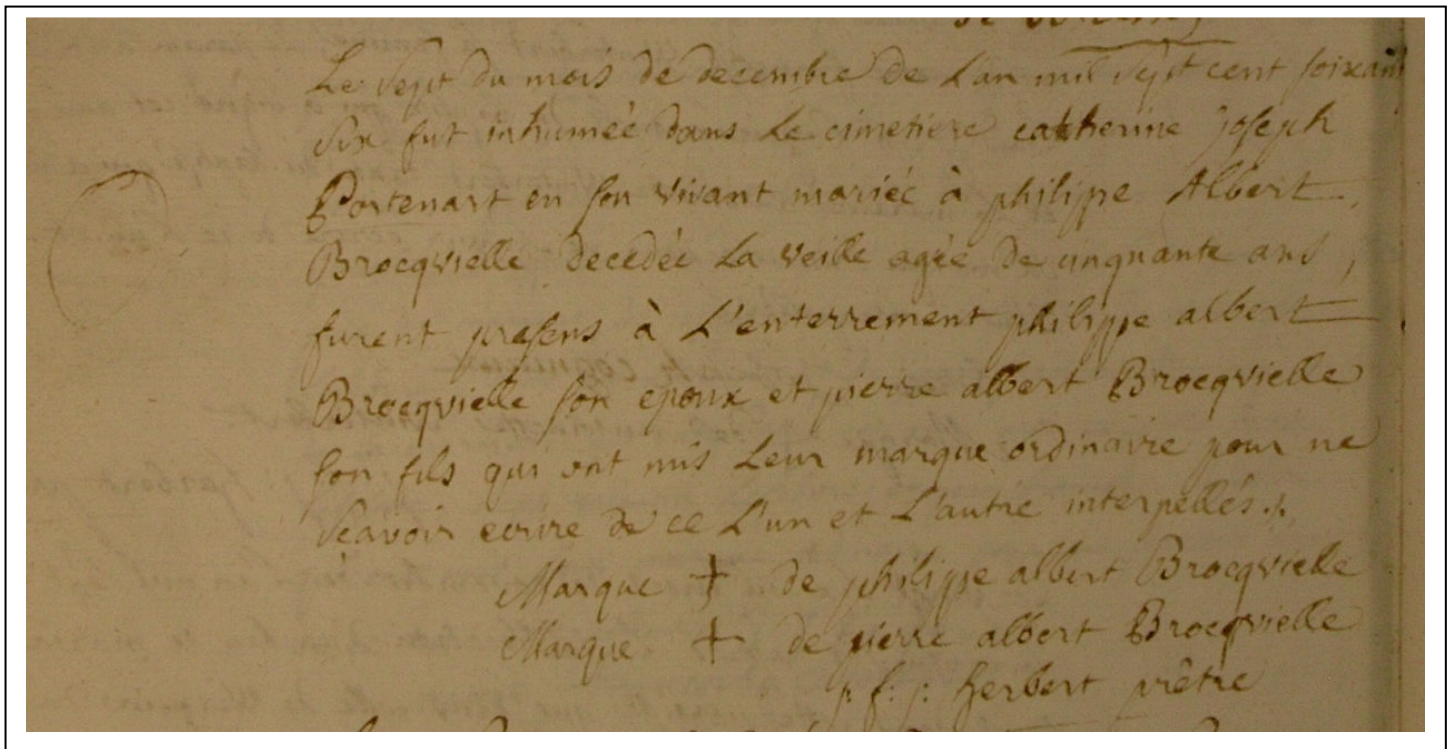 Le sept du mois de decembre de L'an mil sept cent soixante
six fut inhumée dans Le cimetiere catherine joseph
Portenart en son vivant mariée à philippe Albert
Brocqvielle decedée La veille agée de cinquante ans,
furent presens à L'enterrement philippe albert
Brocqvielle son epoux et pierre albert Brocqvielle
son fils qui ont mis Leur marque ordinaire pour ne
sçavoir ecrire de ce L'un et L'autre interpellés.
Marque + de philippe albert Brocqvielle
Marque + de pierre albert Brocqvielle
p. f. j. herbert prêtre